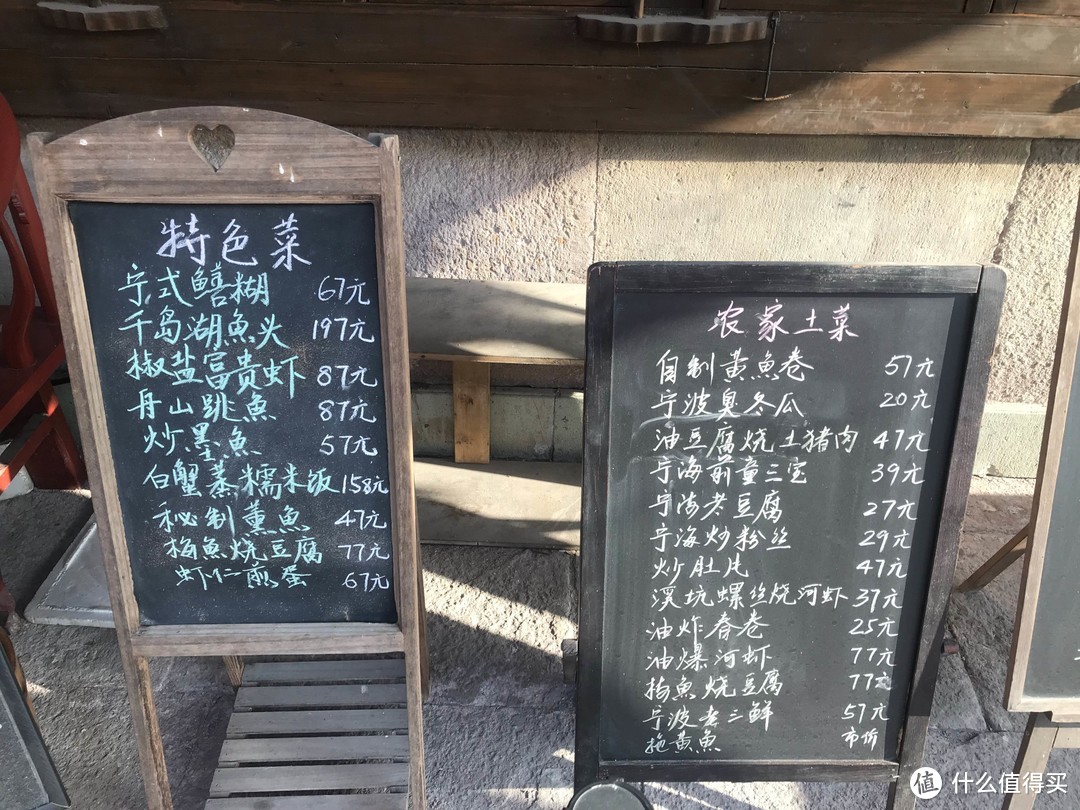 特色菜
宁式鳝糊 67元
千岛湖魚头 197元
椒盐富贵虾 87元
丹山跳魚 87元
炒墨魚 57元
白蟹蒸糯米饭 158元
秘制薰魚 47元
梅魚烧豆腐 77元
虾仁煎蛋 67元
农家土菜
自制黄魚卷 57元
宁波臭冬瓜 20元
油豆腐烧土猪肉 47元
宁海前童三宝 39元
宁海老豆腐 27元
宁海炒粉丝 29元
炒肚片 47元
溪坑螺丝烧河虾 37元
油炸春卷 25元
油爆河虾 77元
梅魚烧豆腐 77元
宁波老三鲜 57元
拖黄魚 市价
值 什么值得买